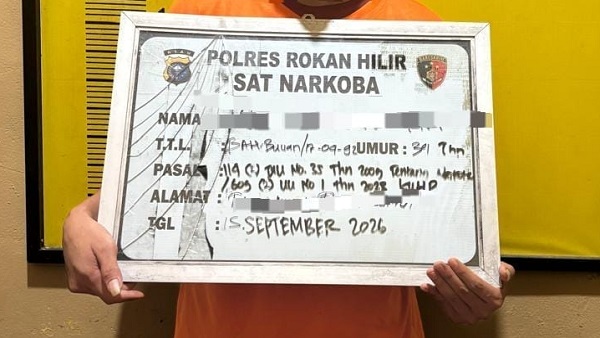 POLRES ROKAN HILIR
SAT NARKOBA
NAMA
T.T.L. : 7-09-92 UMUR : Thn
PASAL : 114 (1) UU No. 35 Thn 2009 Tentang
/ 609 (2) UU No 1 Thn 2023 KUHP
ALAMAT :
TGL : 15. SEPTEMBER 2026